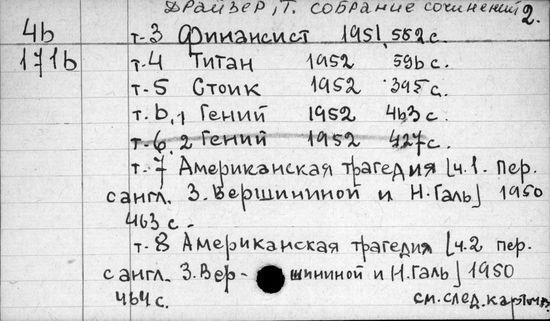 Драйзер, Т. собрание сочинений 2.
4b т-3 Финансист 1951, 552 с.
171b т-4 Титан 1952 596 с.
т-5 Стоик 1952 395 с.
т. 6, 1 Гений 1952 463 с.
т-6, 2 Гений 1952 427 с.
т-7 Американская трагедия [ч.1. пер.
с англ. З. Вершининой и Н. Галь] 1950
463 с-
т-8 Американская трагедия [ч.2 пер.
с англ. З. Вер-шининой и Н. Галь] 1950
464 с. см. след. карточ.